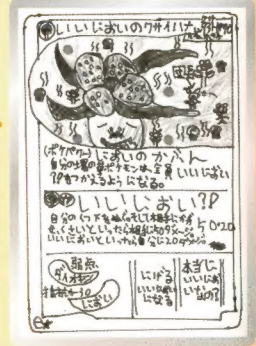 いいにおいのクサイハナ
(ポケパワー)においのかふん
自分の場の草ポケモンは、全員いいにおい
?Pをつかえるようになる。
いいにおい?P
自分のくつ下をぬぐ。そして相手にかが
せ、くさいといったら相手に50ダメージ。 50 20
いいにおいといったら自分に20ダメージ。
弱点
ダイオキシン
抵抗力-30
におい
にげる
いいにおい
になる
本当に
いいにお
いな
の?